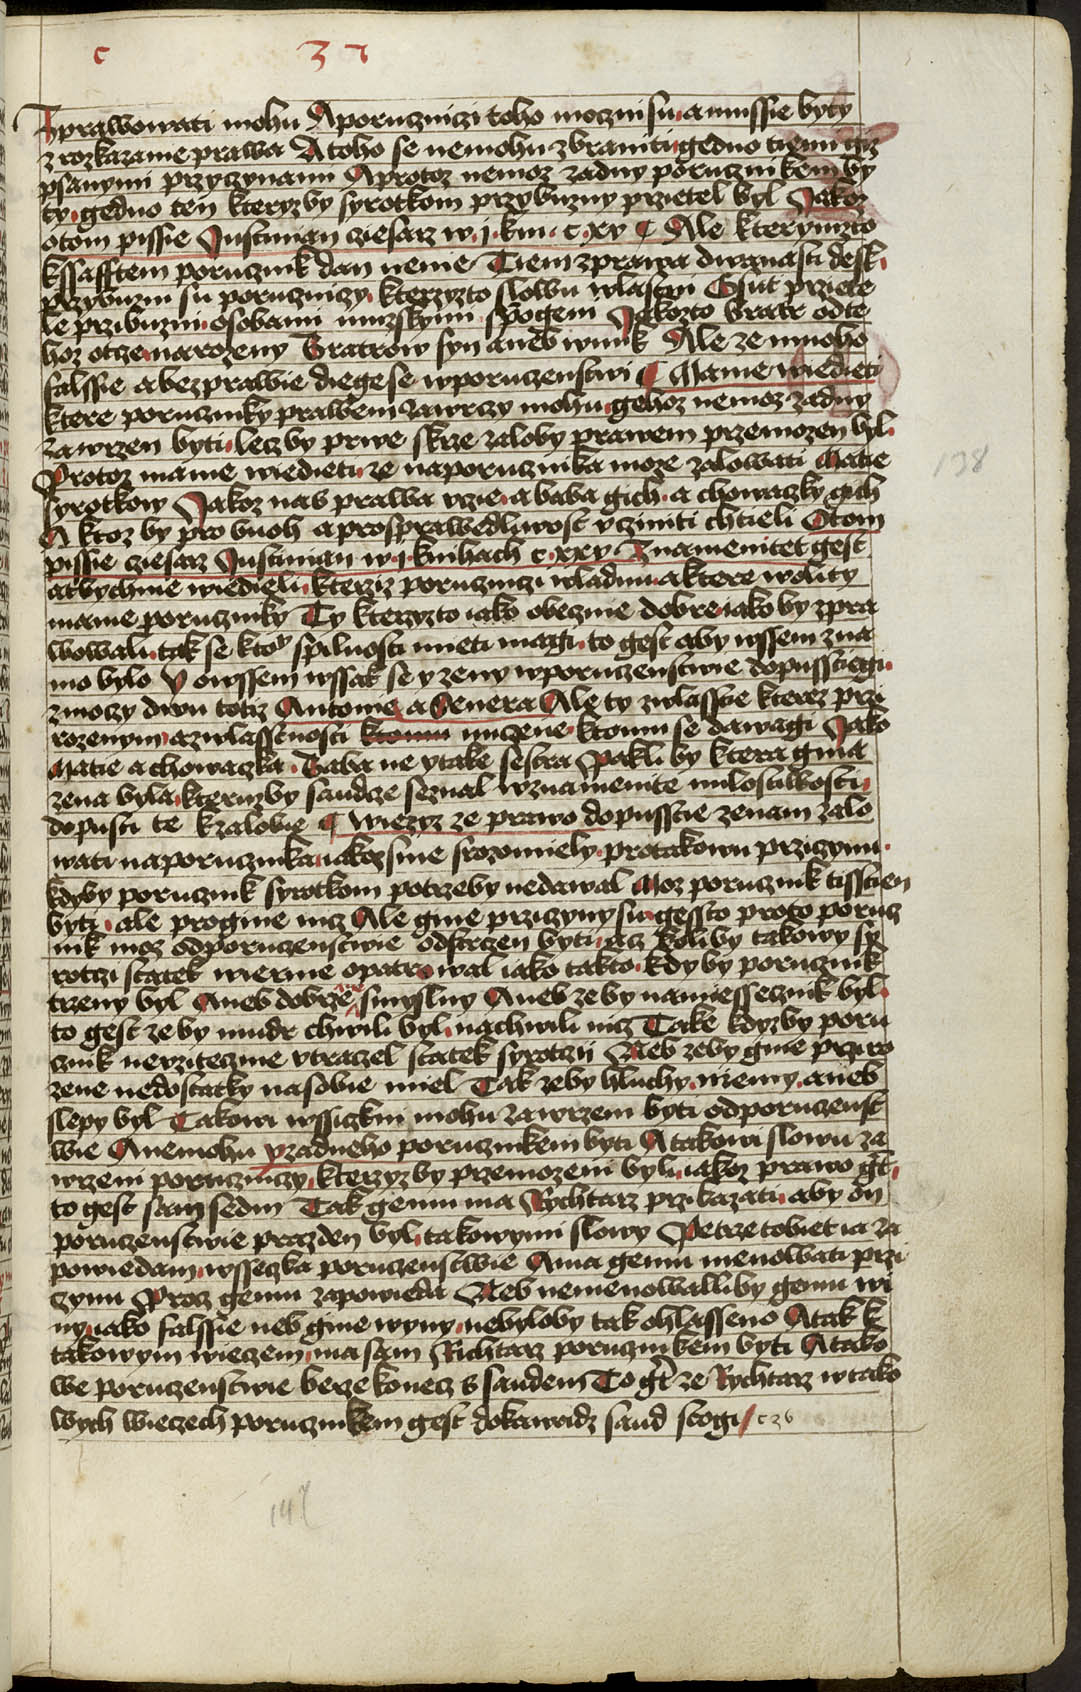 c 37
zprawowati mohu Aporuczniczi toho moczni su a mussie byty
z rozkazanie prawa Atoho se nemohu zbraniti gedno tiemi giz
psanymi przyczynami Aprotoz nemoz zadny porucznikem by
ty gedno ten kteryz by syrotkom przybuzny przietel byl Jakoz
otom pissie Justinian cziesarz w j kni c xv ¶ Ale kterymzto
kssafftem porucznik dan nenie Tiem zprawa dwanasti desk
przybuzni su poruczniczy kterzyzto slowu wlastni Gsut prziete
le przibuzni osobami muzskymi spogeni Jakozto bratr odte
hoz otcze narozeny Bratrow syn aneb wnuk Ale ze mnoho
falssie a bezprawie diege se wporuczenstwi ¶ Mame wiedieti
ktere poruczniky prawem zawrczy mohu gehoz nemoz zadny
zawrzen byti lecz by prwe skrze zaloby prawem przemozen byl
Protoz mame wiedieti ze naporucznika moze zalowati Matie
syrotkow Jakoz nas prawa vczie a baba gich a chowaczky gich
A ktoz by pro buoh a prosprawedlnwost vcziniti chtieli Otom
pissie cziesarz Justinian w j knihach c xxv Znamenitet gest
atbychme wiedieli kterziz porucznizi wladnu a ktere woliti
mame poruczniky Ty kteryzto iako obecznie dobre iako by zpra
wowali tak se ktoy spilnosti mieti magi to gest aby wssem zna
mo bylo V owssem wssak se y zeny wporuczenstwie dopusstiegi
zmoczy dwu totiz Antonie a Senera Ale ty zwlasscie kterez przi
rozenym azwlasscnosti ktomu muczene ktomu se dawagi Jako
Matie a chowaczka Baba ne ytake sestra Pakli by ktera gina
zena byla kteruz by saudcze seznal wznamenite milostiwosti
dopusti te kzalobie ¶ Wiezyz ze prawo dopusscie zenam zalo
wati naporucznika iakozsme srozomiely protakowu przizynu
kdyby porucznik syrotkom potrzeby nedawal Moz porucznik tisstien
byti ale progine nicz Ale gine przizyny su gessto proto porucz
nik moz odporuczenstwie odstrczen byti acz koliby takowy sy
rotczi statek wiernie opatrowal iako takto kdy by porucznik
trzeny byl Aneb dobrze smyslny Aneb ze by namiessecznik byl
to gest ze by mudr chwili byl nachwili nicz Take kdyzby poru
cznik nevzitecznie vtraczel statek syrotczij Neb zeby gine przro
zene nedostatky nasobie miel Tak zeby hluchy niemy aneb
slepy byl Takowi wssiczkni mohu zawrzeni byti odporuczenst
wie Anemohu yzadneho porucznikem byti Atakowi slowu za
wrzeni porucznizy kterzyz by przemozeni byli iakoz prawo gt
to gest sam sedm Tak gemu ma Rychtarz przikazati aby on
poruczenstwie prazden byl takowymi slowy Petrze tobiet ia za
powiedam wsseczka poruczenstwie Ama gemu menowati przi
czynu Procz gemu zapowieda Neb nemenowalliby gemu wi
ny iako falssie neb gine wyny nebyloby tak ohlasseno Atak k
takowym wieczem ma sam Richtarz porucznikem byti Atako
we poruczenstwie berze konecz s saudem To gt ze Rychtarz wtako
wych wieczech porucznikem gest dokawadz saud stogi c 26
138
147